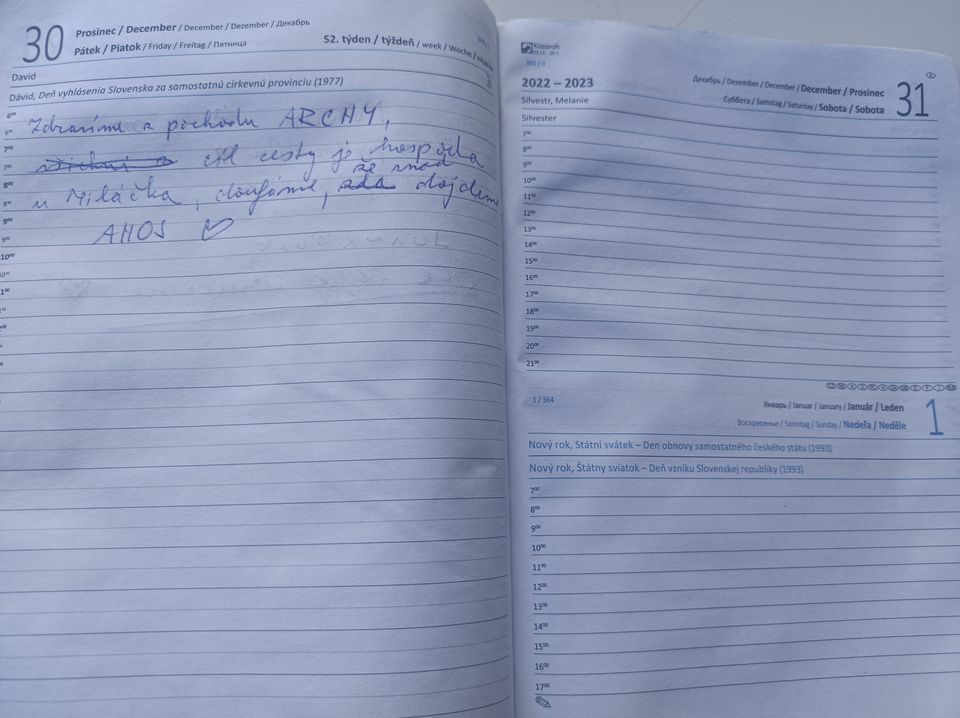 30
Prosinec / December / December / Dezember / Декабрь
Pátek / Piatok / Friday / Freitag / Пятница
52. týden / týždeň / week / Woche /
David
Dávid, Deň vyhlásenia Slovenska za samostatnú cirkevnú provinciu (1977)
6⁰⁰
6³⁰
7⁰⁰
7³⁰
8⁰⁰
8³⁰
9⁰⁰
9³⁰
10⁰⁰
Zdravíme z pochodu ARCHY,
cíl cesty je hospoda
u Miláčka, doufáme, že snad dojdem
AHOJ ♡
Kozoroh
22.12. - 20.1.
365 / 0
2022 – 2023
Декабрь / Dezember / December / December / Prosinec
Суббота / Samstag / Saturday / Sobota / Sobota
31
Silvestr, Melanie
Silvester
7⁰⁰
8⁰⁰
9⁰⁰
10⁰⁰
11⁰⁰
12⁰⁰
13⁰⁰
14⁰⁰
15⁰⁰
16⁰⁰
17⁰⁰
18⁰⁰
19⁰⁰
20⁰⁰
21⁰⁰
1 / 364
Январь / Januar / January / Január / Leden
Воскресенье / Sonntag / Sunday / Nedeľa / Neděle
1
Nový rok, Státní svátek – Den obnovy samostatného českého státu (1993)
Nový rok, Štátny sviatok – Deň vzniku Slovenskej republiky (1993)
7⁰⁰
8⁰⁰
9⁰⁰
10⁰⁰
11⁰⁰
12⁰⁰
13⁰⁰
14⁰⁰
15⁰⁰
16⁰⁰
17⁰⁰